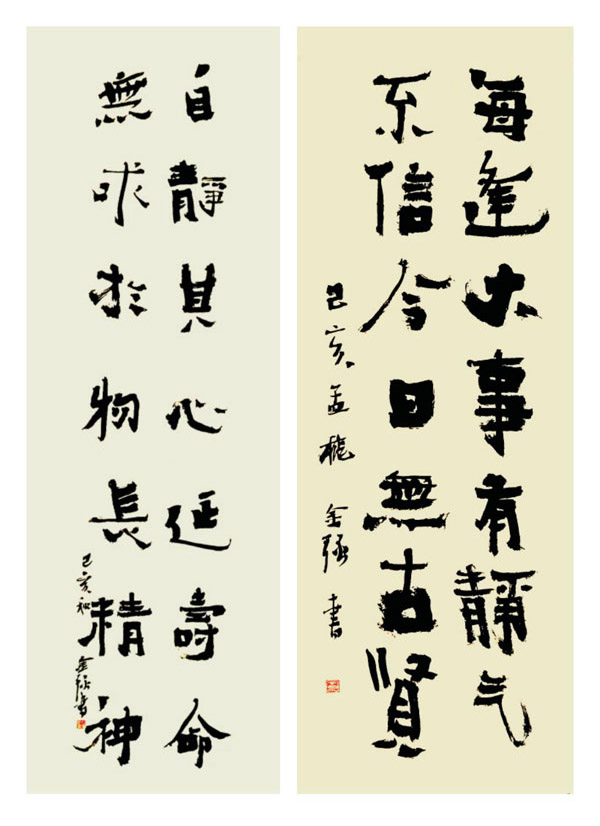 每逢大事有靜气
不信今日無古賢
己亥孟穐 金强書
自靜其心延壽命
無求於物長精神
己亥秋 金强書